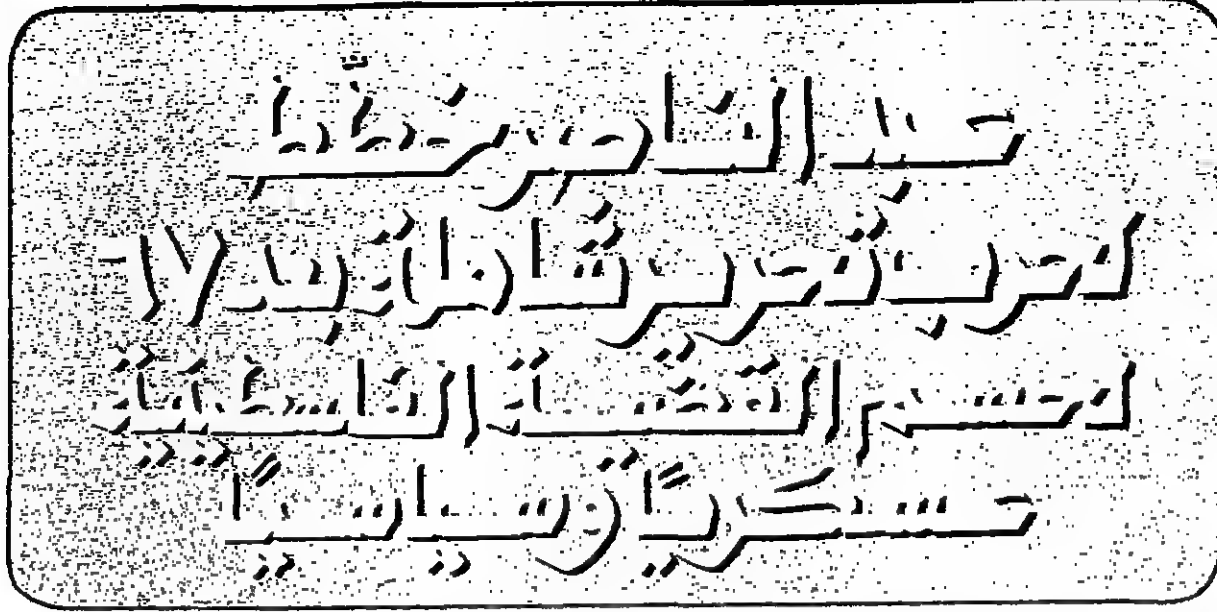 عبد الناصر خطط
لحرب تحرير شاملة بعد ٦٧
لحسم القضية الفلسطينية
عسكريًا وسياسيًا